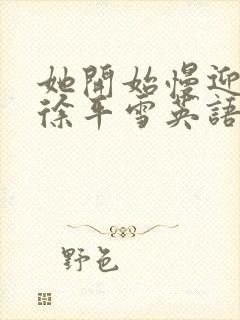 她開始慢迎
徐平雪英語
野色